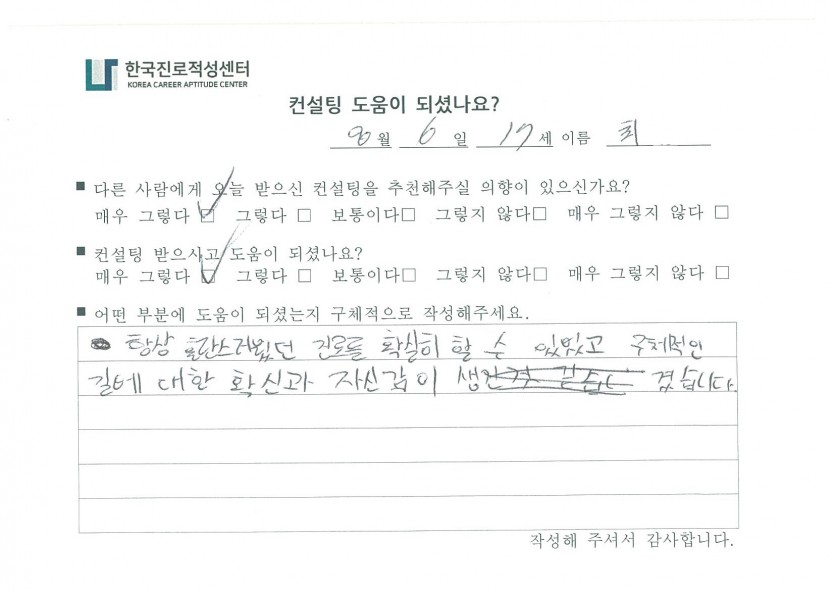 한국진로적성센터
KOREA CAREER APTITUDE CENTER
컨설팅 도움이 되셨나요?
8월 6일 17세 이름 최
■ 다른 사람에게 오늘 받으신 컨설팅을 추천해주실 의향이 있으신가요?
매우 그렇다 ☑ 그렇다 □ 보통이다□ 그렇지 않다□ 매우 그렇지 않다 □
■ 컨설팅 받으시고 도움이 되셨나요?
매우 그렇다 ☑ 그렇다 □ 보통이다□ 그렇지 않다□ 매우 그렇지 않다 □
■ 어떤 부분에 도움이 되셨는지 구체적으로 작성해주세요.
항상 혼란스러웠던 진로를 확실히 할 수 있었고 구체적인
길에 대한 확신과 자신감이 생겼습니다.
작성해 주셔서 감사합니다.